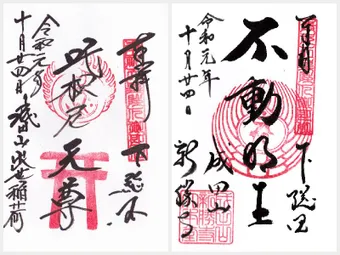 奉拝 下総国
吒枳尼天尊
令和元年
十月廿四日 成田山出世稲荷
奉拝 下総国
不動明王
成田山
新勝寺
令和元年
十月廿四日